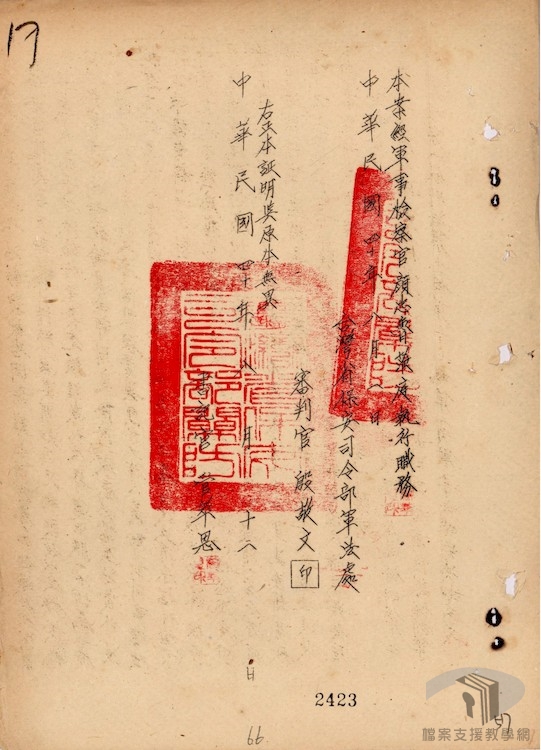 本案經軍事檢察官顏忠魯蒞庭執行職務
中華民國四十年八月　日
台灣省保安司令部軍法處
審判官 殷敬文 印
右正本証明與原本無異
中華民國四十年八月十二日
書記官
2423
66
檔案支援教學網